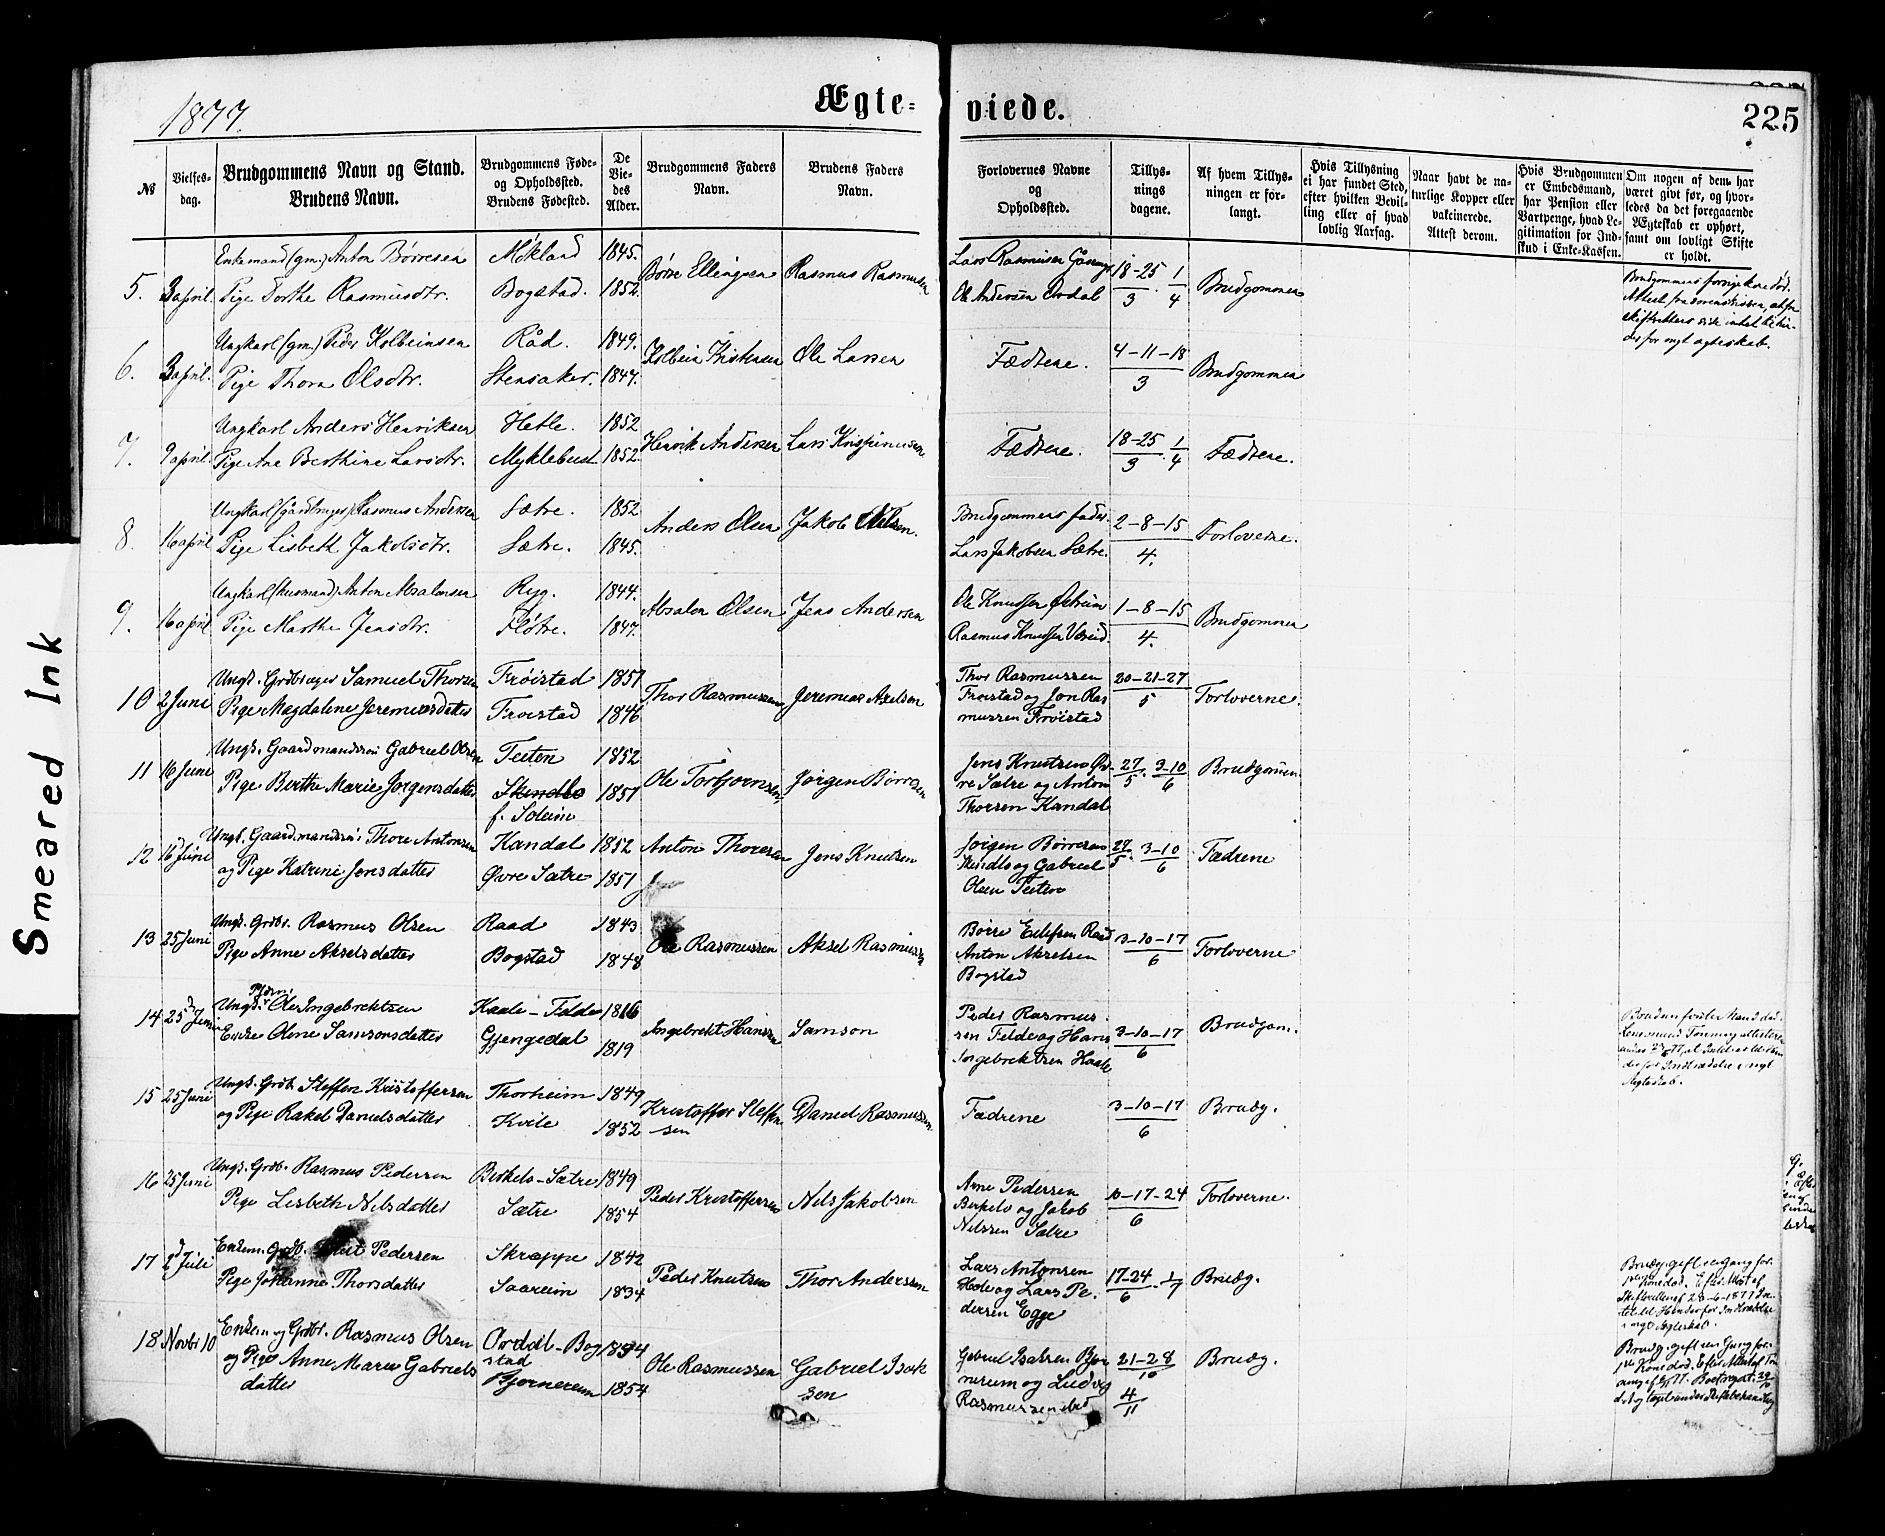 Smeared Ink
1877.
Ægte-
viede.
225
№
Vielses-
dag.
Brudgommens Navn og Stand.
Brudens Navn.
Brudgommens Føde-
og Opholdssted.
Brudens Fødested.
De
Vie-
des
Alder.
Brudgommens Faders
Navn.
Brudens Faders
Navn.
Forlovernes Navne
og
Opholdssted.
Tillys-
nings
dagene.
Af hvem Tillys-
ningen er for-
langt.
Hvis Tillysning
ei har fundet Sted,
efter hvilken Bevil-
ling eller af hvad
lovlig Aarsag.
Naar havt de na-
turlige Kopper eller
vakcinerede.
Attest derom.
Hvis Brudgommen
er Embedsmand,
har Pension eller
Vartpenge, hvad Le-
gitimation for Ind-
skud i Enke-Kassen.
Om nogen af dem har
været givt før, og hvor-
ledes da det foregaaende
Ægteskab er ophørt,
samt om lovligt Skifte
er holdt.
5. 3 april.
Enkemand (gm.) Anton Børresen
Pige Dorthe Rasmusdtr.
Møkland 1845.
Bogstad. 1852.
Børre Ellingsen
Rasmus Rasmussen
Lars Rasmusen
Ole Andersen Ordal
18-25 1
3 . 4
Brudgommen
Brudgommens forrige kone død.
6. 3 april.
Ungkarl (gm.) Peder Kolbeinsen
Pige Thora Olsdtr.
Råd. 1849.
Stensaker. 1847.
Kolbein Kristensen
Ole Larsen
Fædrene.
4-11-18
3
Brudgommen
7. 9 april.
Ungkarl Anders Henriksen
Pige Ane Berthine Larsdtr.
Hetle. 1852
Myklebust 1852.
Henrik Andersen
Lars Kristiansen
Fædrene.
18-25 1
3 . 4
Fædrene.
8. 16 april
Ungkarl (gårdbruger) Rasmus Andersen
Pige Lisbeth Jakobsdtr.
Sætre. 1852
Sætre. 1845.
Anders Olsen
Jakob Nilsen.
Brudgommens fader.
Lars Jakobsen Sætre.
2-8-15
4.
Forloverne.
9. 16 april
Ungkarl (husmand) Anton Absalonsen
Pige Marthe Jensdtr.
Ryg. 1844.
Fløtre. 1847.
Absalon Olsen
Jens Andersen
Ole Knudsen
Rasmus Knudsen
1-8-15
4.
Brudgommen
10 2 Juni
Ungk. Grdbruger Samuel Thorsen
Pige Magdalene Jeremiasdatter
Frøistad 1851
Frøistad 1846
Thor Rasmussen
Jeremias Axelsen
Thor Rasmussen
Frøistad og Jon Ras
mussen Frøistad
20-21-27
5
Forloverne.
11 16 Juni
Ungk. Gaardmandssøn Gabriel Olsen
Pige Berthe Marie Jørgensdatter
Teiten 1852
1851
f. Soleim
Ole Torbjørnsen
Jørgen Børresen
Jens Knutsen Øv-
re Sætre og Anton
Thorsen Kandal
27 3-10
5 . 6
Brudgommen
12 16 Juni
Ungk. Gaardmandssøn Thore Antonsen
og Pige Katrine Jensdatter
Kandal 1852
Øvre Sætre 1851
Anton Thoresen
Jens Knutsen
Jørgen Børresen
og Gabriel
Olsen Teiten
27 3-10
5 . 6
Fædrene
13 25 Juni
Ungk. Grdbr. Rasmus Olsen
Pige Anne Akselsdatter
Raad 1843
Bogstad 1848
Ole Rasmussen
Aksel Rasmussen
Børre Ellefsen Raad
Anton Akselsen
Bogstad
3-10-17
6
Forloverne
14 25 Juni
Ungk. Ole Ingebrektsen
Enke Oline Samsonsdatter
Haale-Felde 1816
Gjengedal 1819
Ingebrekt Hansen
Samson
Peder Rasmus-
sen Felde og Hans
Ingebrektsen Haale
3-10-17
6
Brudgom.
15 25 Juni
Ungk. Grdb. Steffen Kristoffersen
og Pige Rakel Danielsdatter
Thorheim 1849
Kvile 1852
Kristoffer Steffen
sen
Daniel Rasmussen
Fædrene
3-10-17
6
Brudg.
16 25 Juni
Ungk. Grdb. Rasmus Pedersen
Pige Lisbeth Nilsdatter
Birkelo-Sætre 1849
Sætre 1854
Peder Kristoffersen
Nils Jakobsen
Arne Pedersen
Birkelo og Jakob
Nilssen Sætre
10-17-24
6
Forloverne.
17 2 Juli
Enkem. Grdb. Pedersen
Pige Johanne Thorsdatter
Skrøppe 1842
Saareim 1834
Peder Knutsen
Thor Anderssen
Lars Antonsen
og Lars Pe-
dersen Egge
17-24 1
6 . 7
Brudg.
18 Novbr 10
Enkem og Grdbr. Rasmus Olsen
og Pige Anne Marie Gabriels
datter
Orddal-Bog
stad
Bjørnereim 1854
Ole Rasmussen
Gabriel Isak
sen
Gabriel Isaksen Bjør
nereim og Ludvig
Rasmussen
21-28
10
4
11
Brudg.